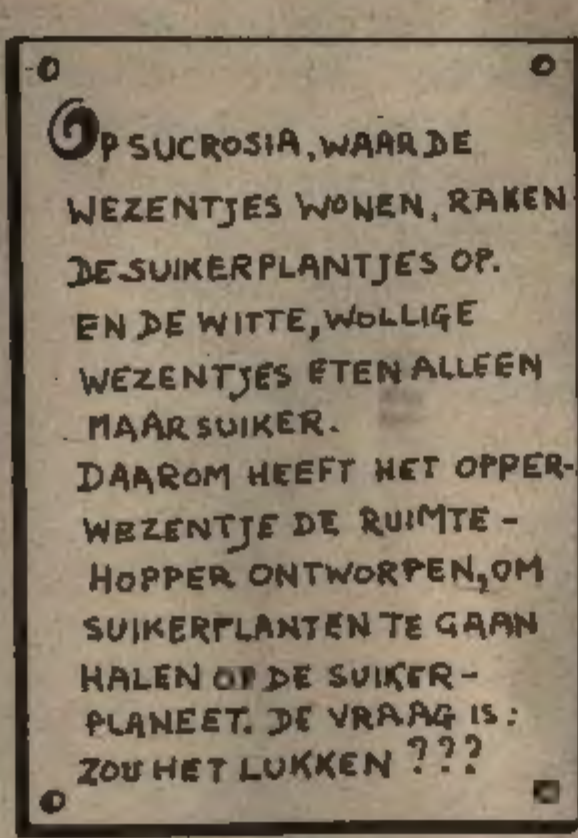 OP SUCROSIA, WAAR DE
WEZENTJES WONEN, RAKEN
DE SUIKERPLANTJES OP.
EN DE WITTE, WOLLIGE
WEZENTJES ETEN ALLEEN
MAAR SUIKER.
DAAROM HEEFT HET OPPER-
WEZENTJE DE RUIMTE-
HOPPER ONTWORPEN, OM
SUIKERPLANTEN TE GAAN
HALEN OP DE SUIKER-
PLANEET. DE VRAAG IS:
ZOU HET LUKKEN ???